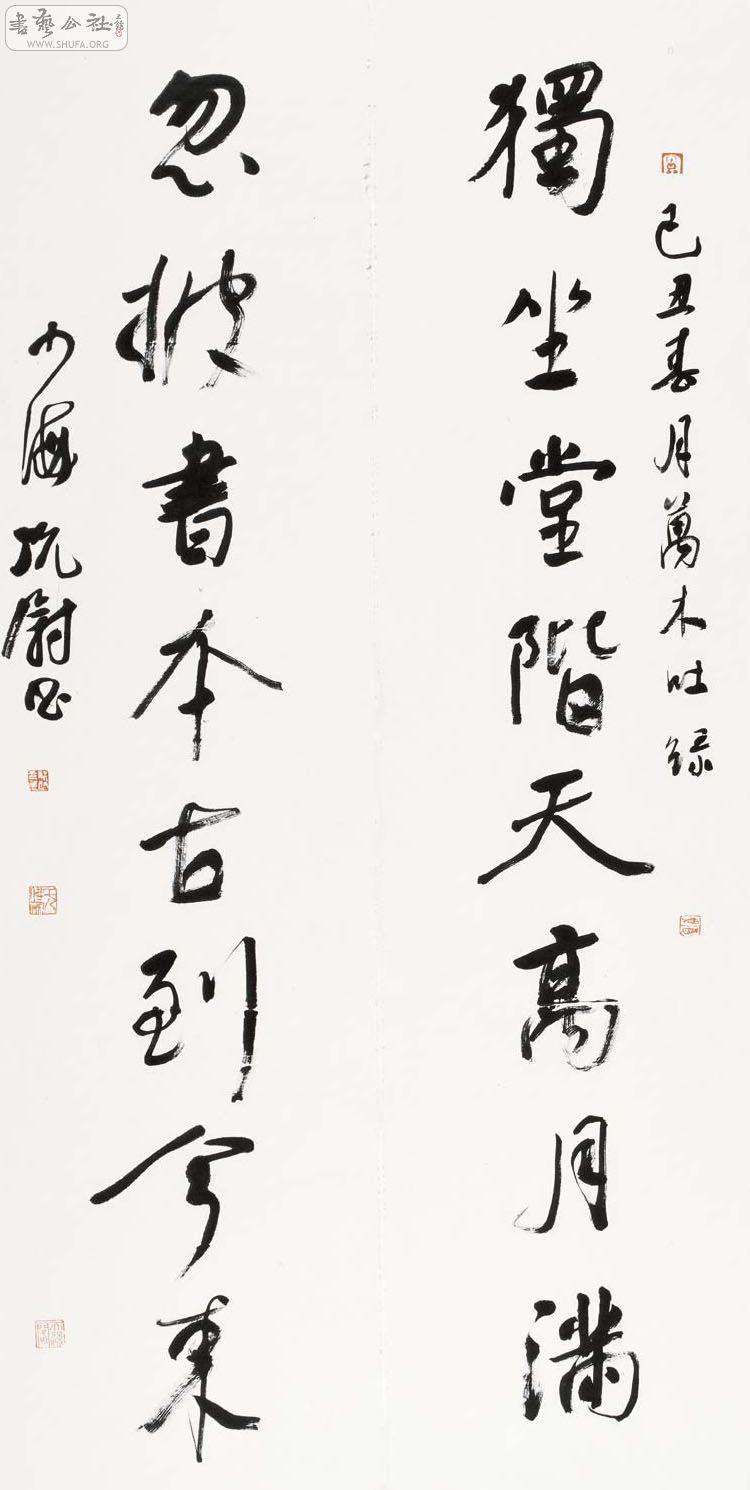 己丑春月萬木吐綠
獨坐堂階天高月滿
忽披書本古到今來
少海阮尉書
書藝公社
WWW.SHUFA.ORG